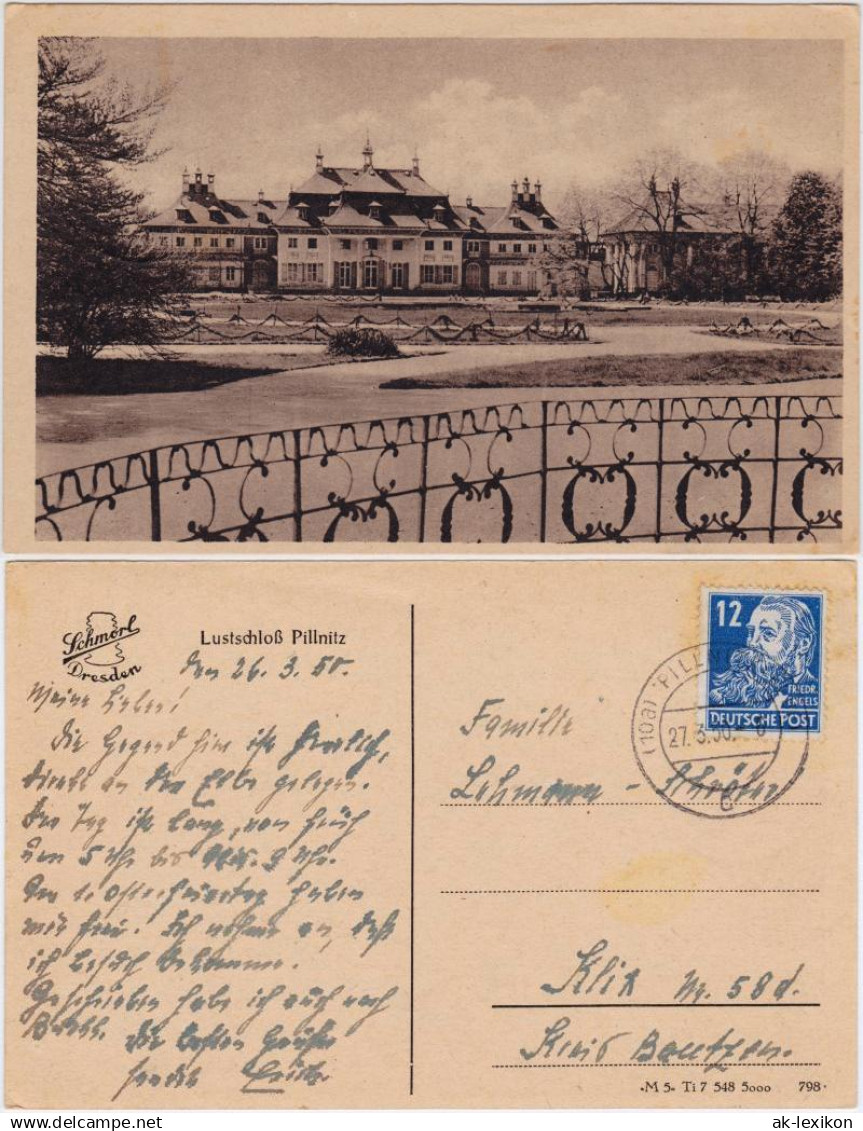 Schmorl
Dresden
Lustschloß Pillnitz
den 26. 3. 50.
Meine Lieben!
Die Gegend hier ist herrlich,
direkt an der Elbe gelegen.
Der Tag ist lang, von früh
um 5 Uhr bis 9 Uhr.
Den 1. Osterfeiertag haben
wir frei. Ich nehme an, daß
ich Besuch bekomme.
Geschrieben habe ich auch nach
Die besten Grüße
sendet
12
FRIEDR.
ENGELS
DEUTSCHE POST
(10a) PILLN
27.3.50.-8
Familie
Lehmann - Schröter
Klix Nr. 58d.
Kreis Bautzen.
•M 5• Ti 7 548 5000 798•
© oldthing.de
ak-lexikon